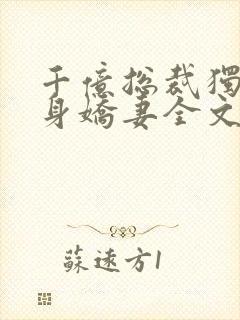 千億總裁獨
身嬌妻全文
蘇遠方1